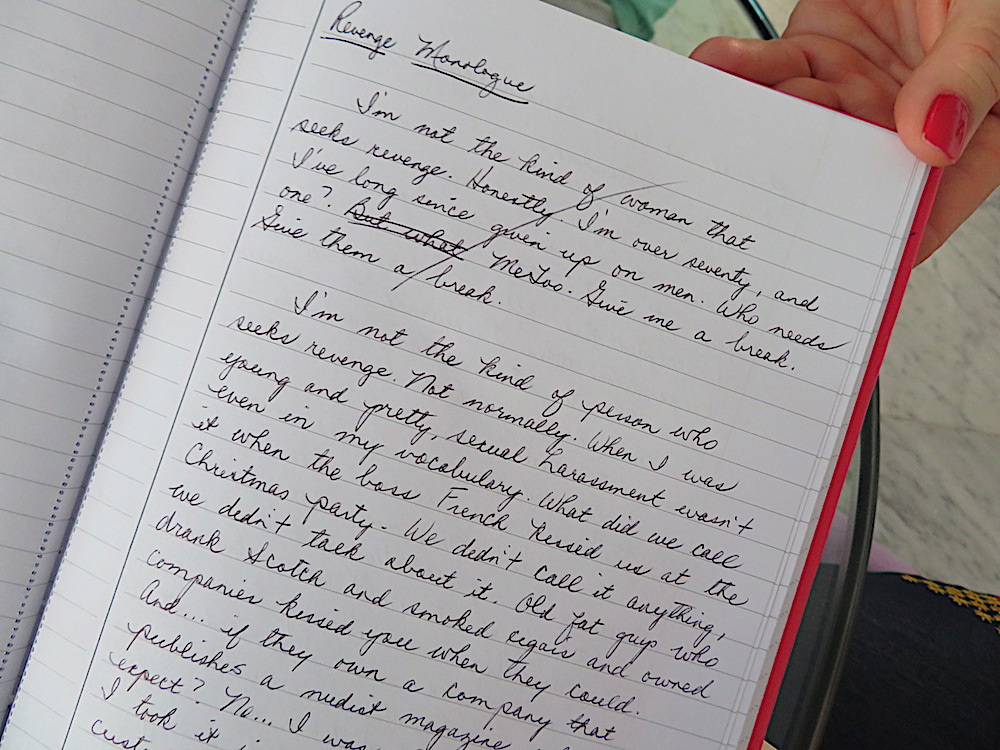 Revenge Monologue
I'm not the kind of woman that
seeks revenge. Honestly. I'm over seventy, and
I've long since given up on men. Who needs
one? But what MeToo. Give me a break.
Give them a break.
I'm not the kind of person who
seeks revenge. Not normally. When I was
young and pretty, sexual harassment wasn't
even in my vocabulary. What did we call
it when the boss French kissed us at the
Christmas party. We didn't call it anything,
we didn't talk about it. Old fat guys who
drank Scotch and smoked cigars and owned
companies kissed you when they could.
And... if they own a company that
publishes a nudist magazine
expect? No... I was
I took it